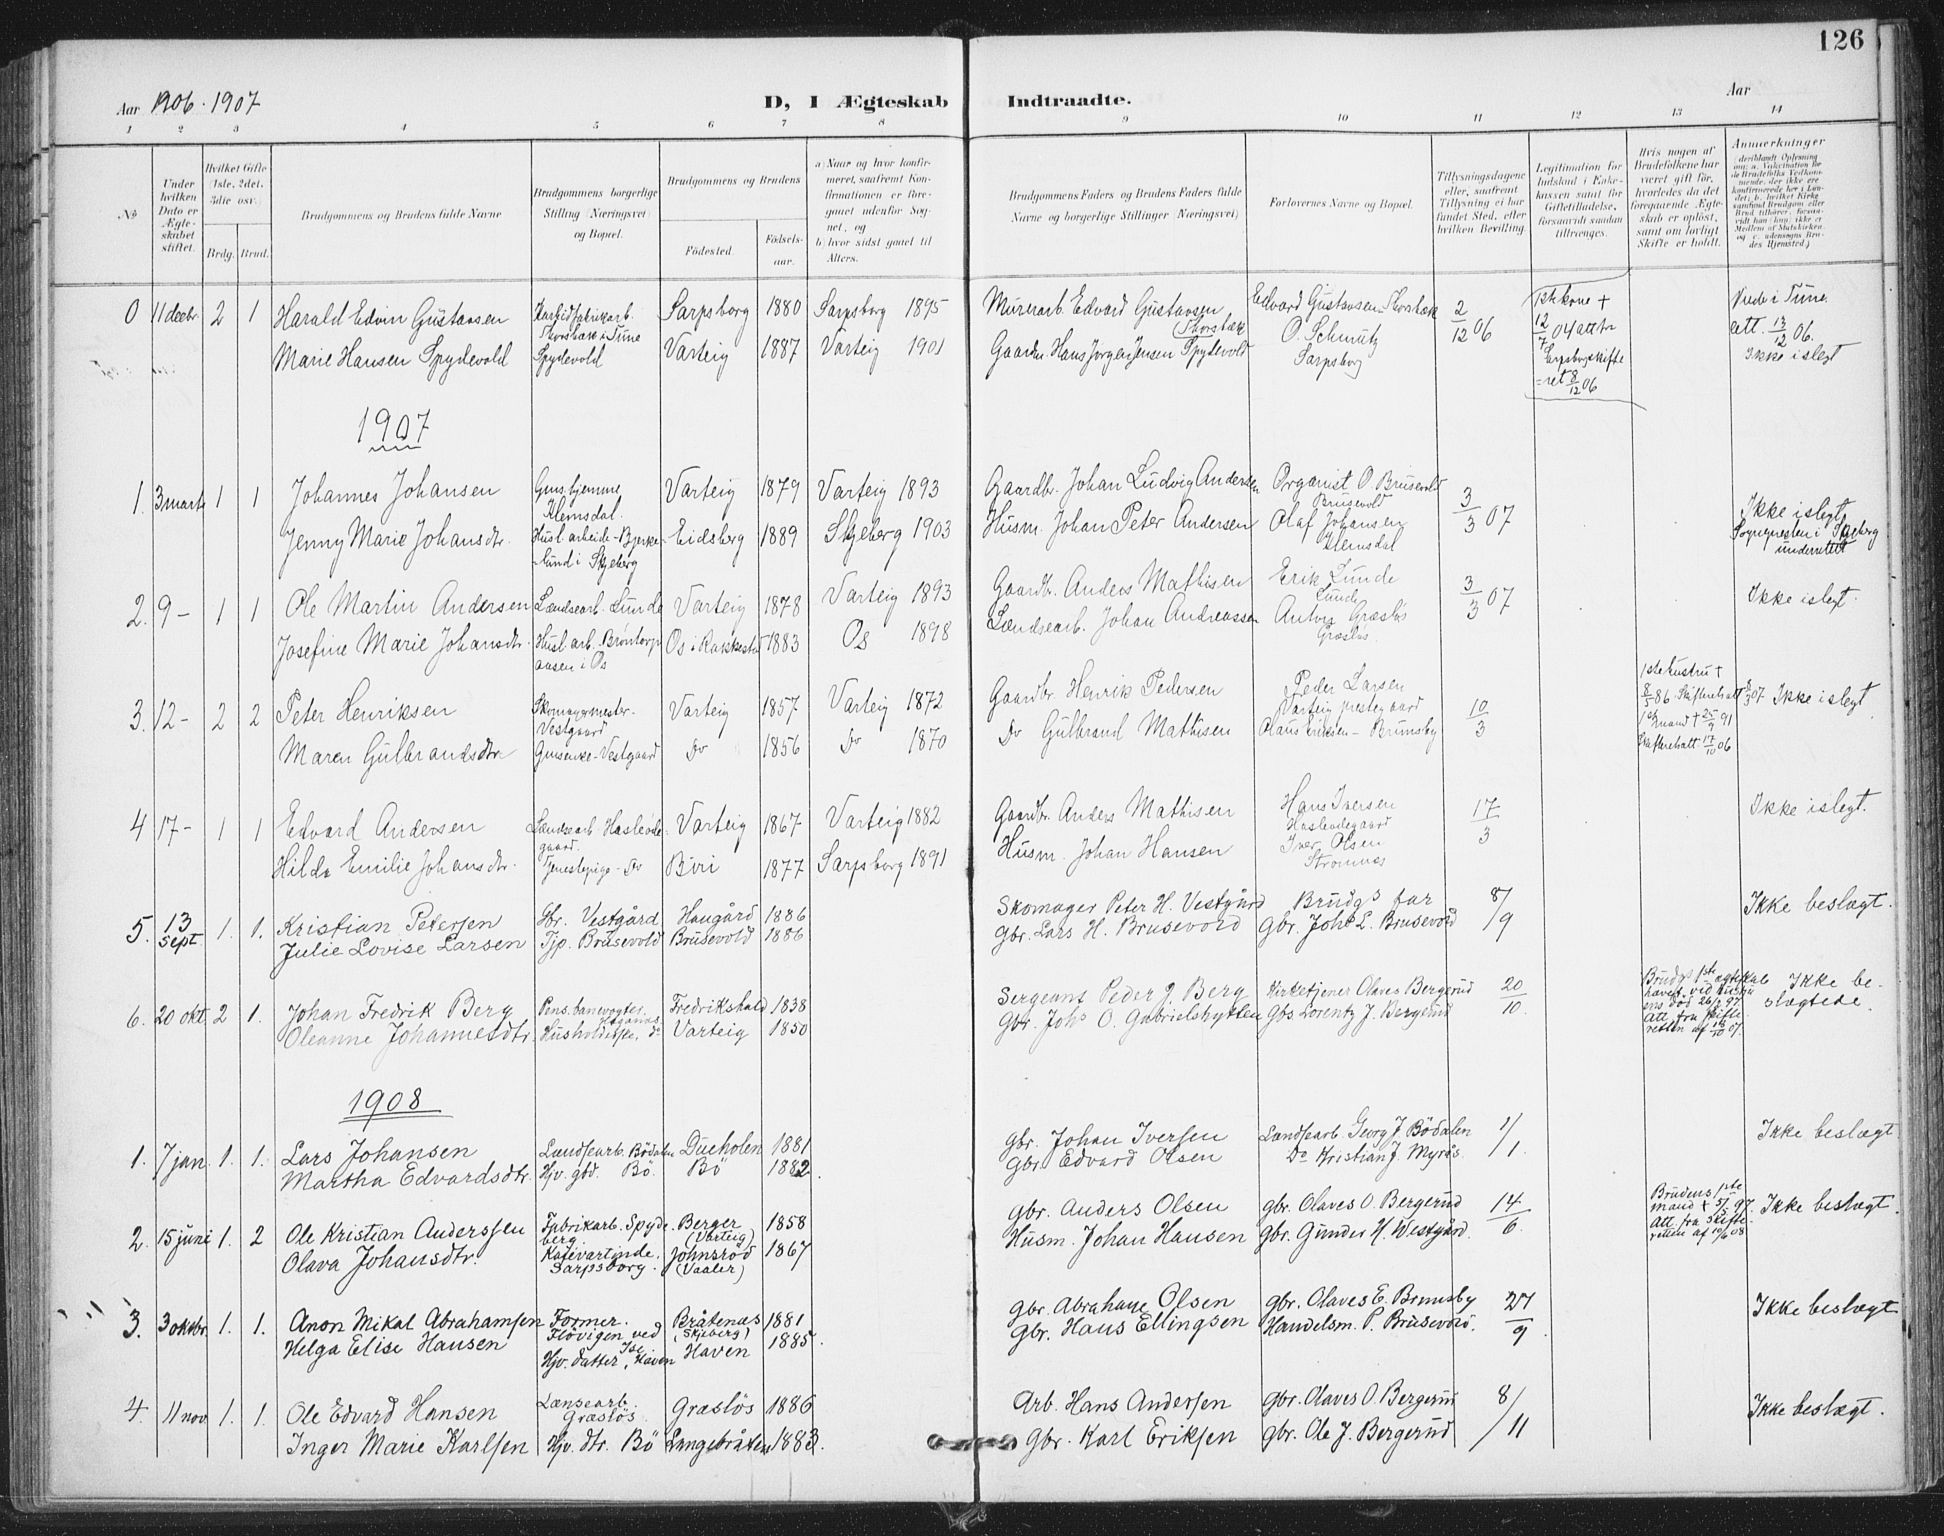 126
Aar 1906-1907
D, I Ægteskab Indtraadte.
Aar
1 2 3 4 5 6 7 8 9 10 11 12 13 14
No
Under hvilken Dato er Ægteskabet stiftet.
Hvilket Gifte (1ste, 2det, 3die osv.)
Brdg. Brud.
Brudgommens og Brudens fulde Navne
Brudgommens borgerlige Stilling (Næringsvei) og Bopæl.
Brudgommens og Brudens
Födested.
Födselsaar.
a) Naar og hvor konfirmeret, saafremt Konfirmationen er foregaaet udenfor Sognet, og
b) hvor sidst gaaet til Alters.
Brudgommens Faders og Brudens Faders fulde Navne og borgerlige Stillinger (Næringsvei)
Forlovernes Navne og Bopæl.
Tillysningsdagene eller, saafremt Tillysning ei har fundet Sted, efter hvilken Bevilling.
Legitimation for Indskud i Enkekassen samt for Giftetilladelse, forsaavidt saadan tiltrænges.
Hvis nogen af Brudefolkene har været gift før, hvorledes da det foregaaende Ægteskab er opløst, samt om lovligt Skifte er holdt.
Anmerkninger
0 11 decbr. 2 1 Harald Edvin Gustavsen Karbidfabrikarb. Torsbæk i Tune Sarpsborg 1880 Sarpsborg 1895 Murerarb. Edvard Gustavsen Torsbæk Edvard Gustavsen-Torsbæk 2/12 06 1ste kone + 12/7 04 att fr Sarpsborg skifteret 8/12 06 Viede i Tune. att. 13/12 06. Ikke i slegt
Marie Hansen Spydevold Spydevold Varteig 1887 Varteig 1901 Gaardbr. Hans Jørgen Jensen Spydevold O. Schmutz Sarpsborg
1907
1. 3 marts 1 1 Johannes Johansen Grns hjemme Klemsdal. Varteig 1879 Varteig 1893 Gaardbr. Johan Ludvig Andersen Organist O. Brusevold Brusevold 3/3 07 Ikke i slegt
Jenny Marie Johansdtr. Husl arbeide - Bjerkelund i Skjeberg Eidsberg 1889 Skjeberg 1903 Husm. Johan Peter Andersen Olaf Johansen Klemsdal Sognepresten i Skjeberg underrettet
2. 9 - 1 1 Ole Martin Andersen Lændsearb. Lunde Varteig 1878 Varteig 1893 Gaardb. Anders Mathisen Erik Lunde Lunde 3/3 07 Ikke i slegt.
Josefine Marie Johansdtr. Husl arb. Brøntorpaasen i Os Os i Rakkestad 1883 Os 1898 Lændsearb. Johan Andreassen Anton Græsløs Græsløs.
3. 12 - 2 2 Peter Henriksen Skomagermester - Vestgaard Varteig 1857 Varteig 1872 Gaardbr. Henrik Pedersen Peder Larsen Varteig prestegaard 10/3 1ste hustru + 8/5 86 Skifteratt 8/3 07 Ikke i slegt
Maren Gulbrandsdtr. Grnsenke - Vestgaard Do 1856 Do 1870 Do Gulbrand Mathisen Olaus Eriksen - Brunsby 1ste mand + 25/9 91 Skifteratt 17/10 06
4 17 - 1 1 Edvard Andersen Lændsearb Hasleødegaard. Varteig 1867 Varteig 1882 Gaardbr. Anders Mathisen Hans Iversen Hasleødegaard 17/3 Ikke i slegt.
Hilda Emilie Johansdtr. Tjenestepige - Do Biri 1877 Sarpsborg 1891 Husm. Johan Hansen Iver Olsen Strømnes
5. 13 sept 1. 1. Kristian Petersen Gbr. Vestgård Haugård 1886 Skomager Peter H. Vestgård Brudgs far 8/9 Ikke beslægt.
Julie Lovise Larsen Tjp. Brusevold Brusevold 1886 Gbr. Lars H. Brusevold Gbr. Johs L. Brusevold
6. 20 okt. 2 1. Johan Fredrik Berg Pens. banevogter. Fredrikshald 1838 Sergeant Peder J. Berg Kirketjener Olaves Bergerud 20/10 Brudgs 1ste ægteskab hævet ved hustruens død 26/2 97. Att. fra skifteretten af 16/10 07. Ikke beslægtede.
Oleanne Johannesdtr. Husholderske, do Varteig 1850 Gbr. Johs O. Gabrielshytten Gbs Lorentz J. Bergerud
1908
1. 7 jan. 1. 1. Lars Johansen Lændsearb. Bödalen Dueholen 1881 Gbr. Johan Iversen Lændsearb. Georg J. Bödalen 1/1 Ikke beslægt
Martha Edvardsdtr. Hjv. gbd. Bö. Bö 1882. Gbr. Edvard Olsen Do Kristian J. Myrås
2. 15 juni 1. 2 Ole Kristian Anderssen Fabrikarb. Spydeberg. Berger (Varteig) 1858 Gbr. Anders Olsen Gbr. Olaves O. Bergerud 14/6. Brudens 1ste mand + 5/5 97. Att. fra skifteretten af 10/6 08. Ikke beslægt.
Olava Johansdtr. Kafévartinde. Sarpsborg. Johnsröd (Vaaler) 1867 Husm. Johan Hansen Gbr. Gunder H. Westgård.
3. 3 oktbr. 1. 1. Anon Mikal Abrahamsen Former. Flövigen ved Ise. Bråtenæs (Skjeberg) 1881 Gbr. Abraham Olsen Gbr. Olaves E. Brunsby 27/9 Ikke beslægt
Helga Elise Hansen Hjv. datter, Haven Haven 1885. Gbr. Hans Ellingsen Handelsm. P. Brusevold.
4. 11 nov. 1. 1. Ole Edvard Hansen Lænsearb. Græslös. Græslös 1886 Arb. Hans Andersen Gbr. Olaves O. Bergerud 8/11 Ikke beslægt.
Inger Marie Karlsen Hjv. dtr. Bö Langebråten 1883. Gbr. Karl Eriksen Gbr. Ole J. Bergerud